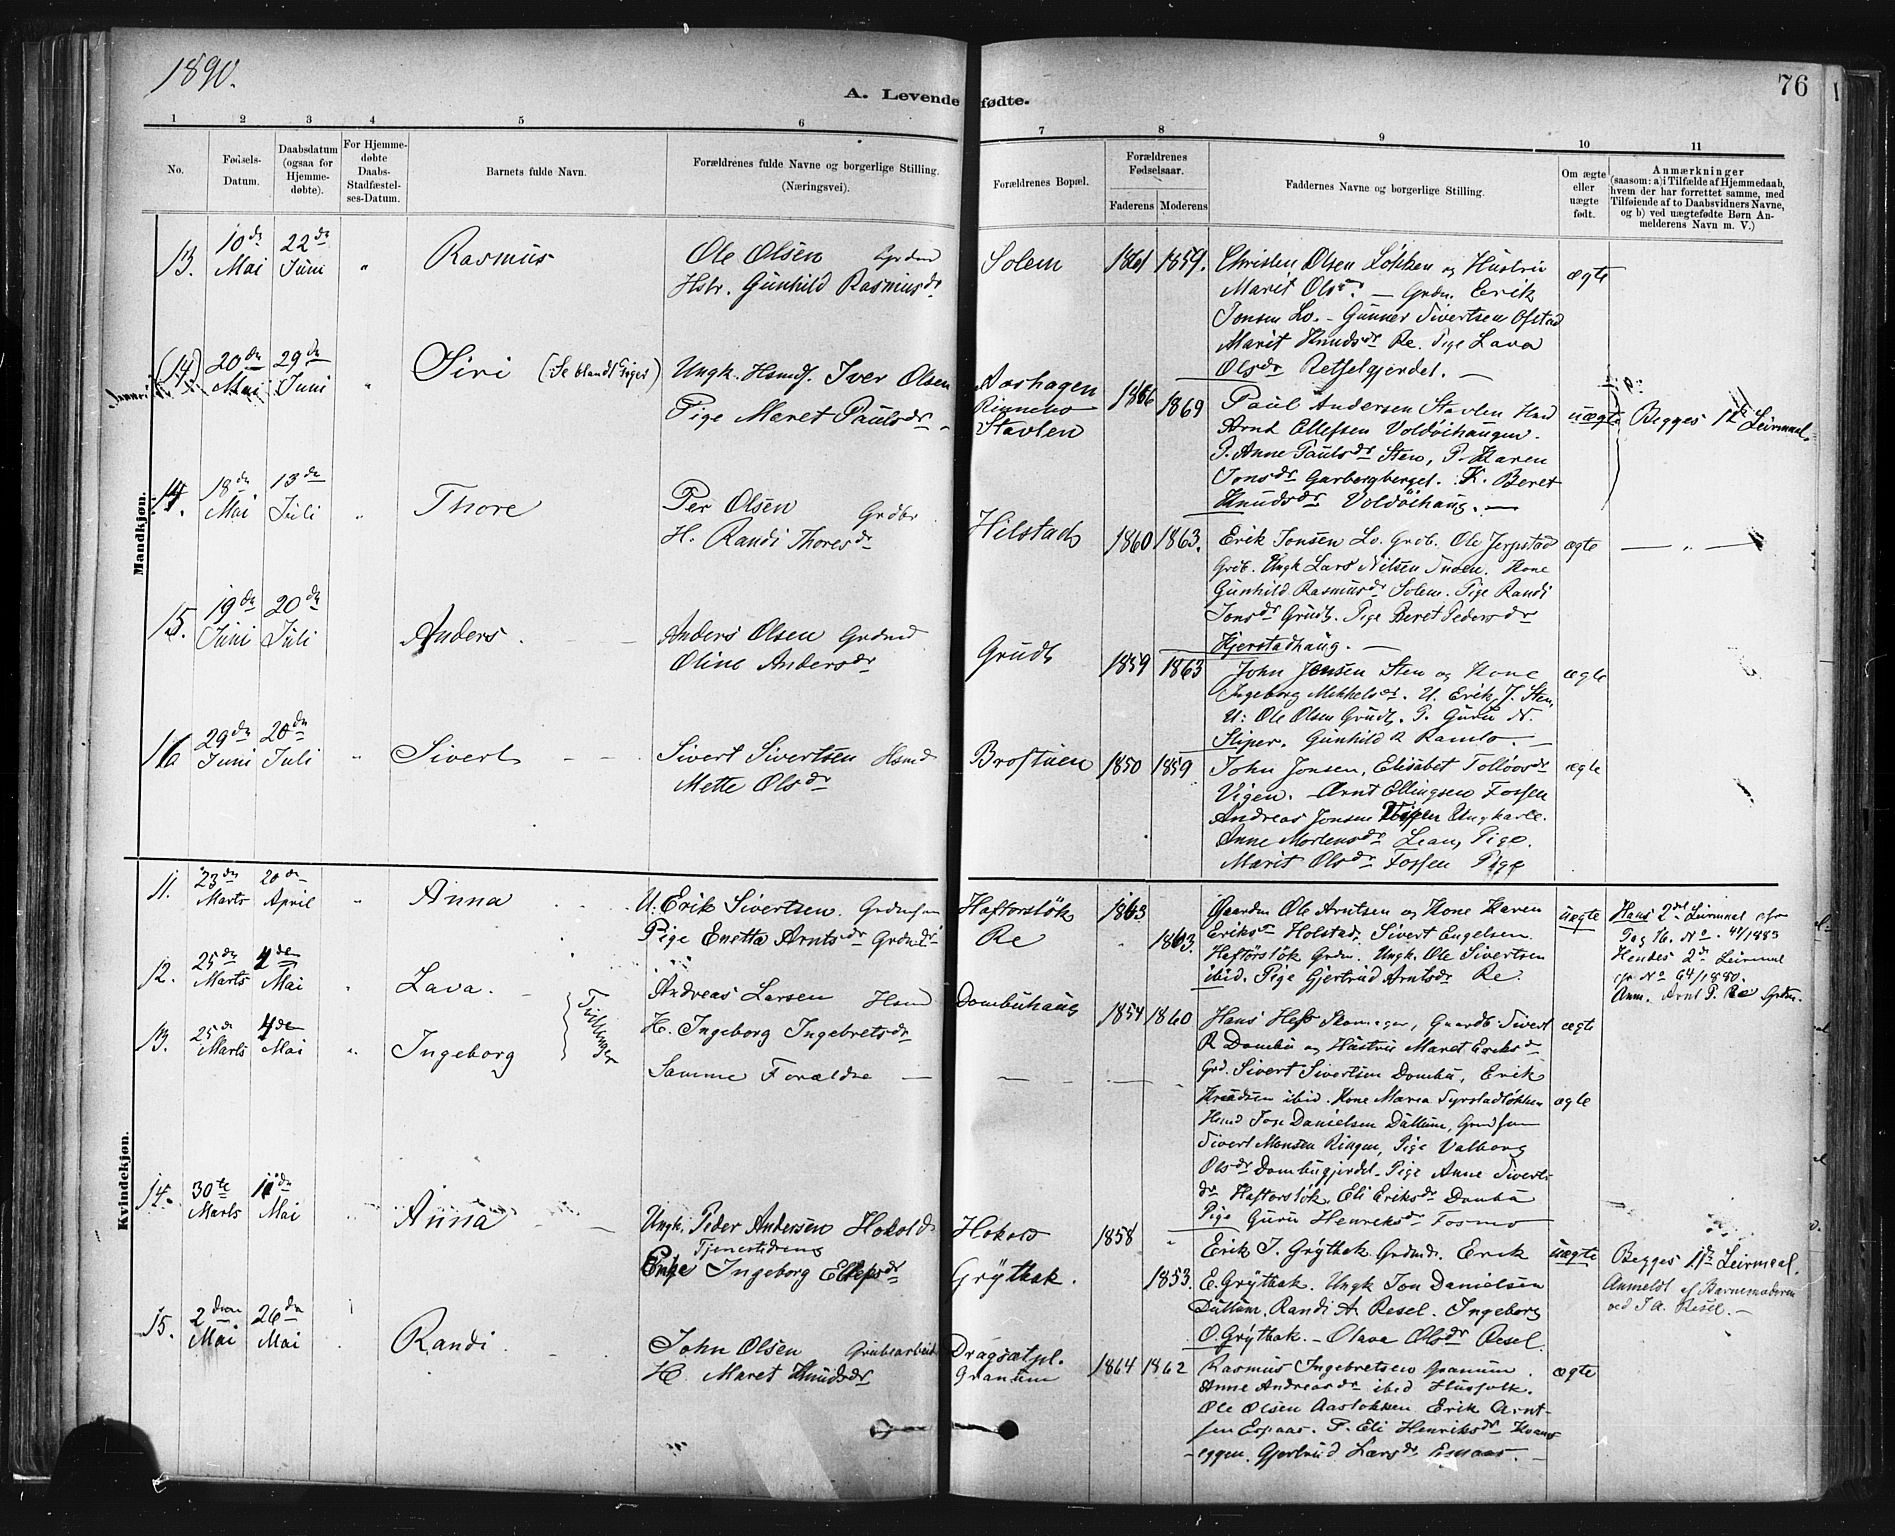 1890.
76
A. Levende fødte.
1 2 3 4 5 6 7 8 9 10 11
No.
Fødsels-Datum.
Daabsdatum (ogsaa for Hjemme-døbte).
For Hjemme-døbte Daabs-Stadfæstel-ses-Datum.
Barnets fulde Navn.
Forældrenes fulde Navne og borgerlige Stilling. (Næringsvei).
Forældrenes Bopæl.
Forældrenes Fødselsaar.
Faderens Moderens
Faddernes Navne og borgerlige Stilling.
Om ægte eller uægte født.
Anmærkninger
(saasom: a) i Tilfælde af Hjemmedaab,
hvem der har forrettet samme, med
Tilføiende af to Daabsvidners Navne,
og b) ved uægtefødte Børn An-
melderens Navn m. V.)
Mandkjøn.
13. 10de Mai 22de Juni " Rasmus
Ole Olsen Grdmd
Hstr. Gunhild Rasmusdr
Solem 1861 1859.
Christen Olsen Løkken og Hustru
Marit Olsdr. — Grdm. Erik
Jonsen Lo. - Gunner Sivertsen Ofstad
Marit Knudsdr Re. Pige Lava
Olsdr Retselgjerdet. —
ægte
(14) 20de Mai 29de Juni " Siri (Se blandt Piger)
Ungk. Hsmdf. Iver Olsen
Pige Maret Paulsdr
Aashagen
Rinnebo
Stavlen
1866 1869
Paul Andersen Stavlen Hmd
Arnt Ellefsen Voldøihaugen.
P. Anne Paulsdr Sten, P. Karen
Jonsdr Garbergberget. K. Beret
Knudsdr Voldøihaug. —
uægte Begges 1te Leirmaal.
14. 18de Mai 13de Juli " Thore
Per Olsen Grdbr
H. Randi Thoresdr
Hilstad 1860 1863.
Erik Jonsen Lo. Grdb. Ole Jerpstad
Grdb. Ungk Lars Nilsen Tuoen. Kone
Gunhild Rasmusdr Solem. Pige Randi
Jonsdr Grudt. Pige Beret Pedersdr
Hjerstadhaug. —
ægte — " —
15. 19de Juni 20de Juli Anders.
Anders Olsen Grdmd
Oline Andersdr
Grudt 1859 1863
John Jensen Sten og Kone
Ingeborg Mikkelsdr. U. Erik J. Sten,
U: Ole Olsen Grudt. P. Guru N.
Stiper. Gunhild R Ramlo. —
ægte
16 29de Juni 20de Juli " Sivert
Sivert Sivertsen Hsmd
Mette Olsdr
Brostuen 1850 1859
John Jonsen, Elisabet Tolløvsdr
Vigen. — Arnt Ellingsen Fossen
Andreas Jonsen Vigen Ungkarle.
Anne Mortensdr Lean, Pige.
Marit Olsdr Fossen Pige
ægte
Kvindekjøn.
11. 23de Marts 20de April " Anna
U: Erik Sivertsen. Grdmsøn
Pige Enetta Arntsdr Grdmdr
Haftorsløk
Re
1863 1863.
Gaardm Ole Arntsen og Kone Karen
Eriksdr Holstad. Sivert Engelsen
Haftorsløk Grdm. Ungk. Ole Sivertsen
ibid. Pige Gjertrud Arntsdr Re.
uægte
Hans 2det Leirmaal cfr
Pag 16. No. 44/1885
Hendes 2de Leirmaal
cfr No 64/1880.
Anm. Arnt P. Re Grdm.
12. 25de Marts 4de Mai " Lava.
13. 25de Marts 4de Mai " Ingeborg
Tvillinger
Andreas Larsen Hsmd
H. Ingeborg Ingebretsdr
Samme Forældre —
Dombuhaug 1854 1860
Hans Hefs Skomager, Gaardb. Sivert
R Dombu og Hustru Maret Eriksdr
Grd. Sivert Sivertsen Dombu, Erik
Knudsen ibid. Kone Marea Syrstadløkken
Hsmd Jon Danielsen Dullum, Grdmsøn
Sivert Monsen Ringen, Pige Valborg
Olsdr Dombugjerdet. Pige Anne Siverts-
dr Haftorsløk. Eli Eriksdr Dombu
Pige Guru Henriksdr Fosmo
ægte
ægte
14. 30te Marts 11te Mai " Anna
Ungk. Peder Andersen Hokold
Tjenestedreng
Enke Ingeborg Ellefsdr
Hokold
Grÿthak.
1858 " 1853.
Erik J. Grÿthak Grdmd. Erik
E. Grÿthak. Ungk Jon Danielsen
Dullum, Randi A. Resel. Ingeborg
O. Grÿthak. — Olava Olsdr Resel.
uægte
Begges 1te Leirmaal.
Anmeldt af Barnemoderen
ved J A. Resel. —
15. 2den Mai 26de Mai " Randi
John Olsen Grubearbeid
H. Maret Knudsdr
Dragsætpl.
Granum
1864 1862
Rasmus Ingebretsen Granum.
Anne Andreasdr ibid Husfolk.
Ole Olsen Aasløkken Erik Arnt-
sen Espaas. P. Eli Henriksdr Kvams
eggen. Gjertrud Larsdr Espaas. —
ægte